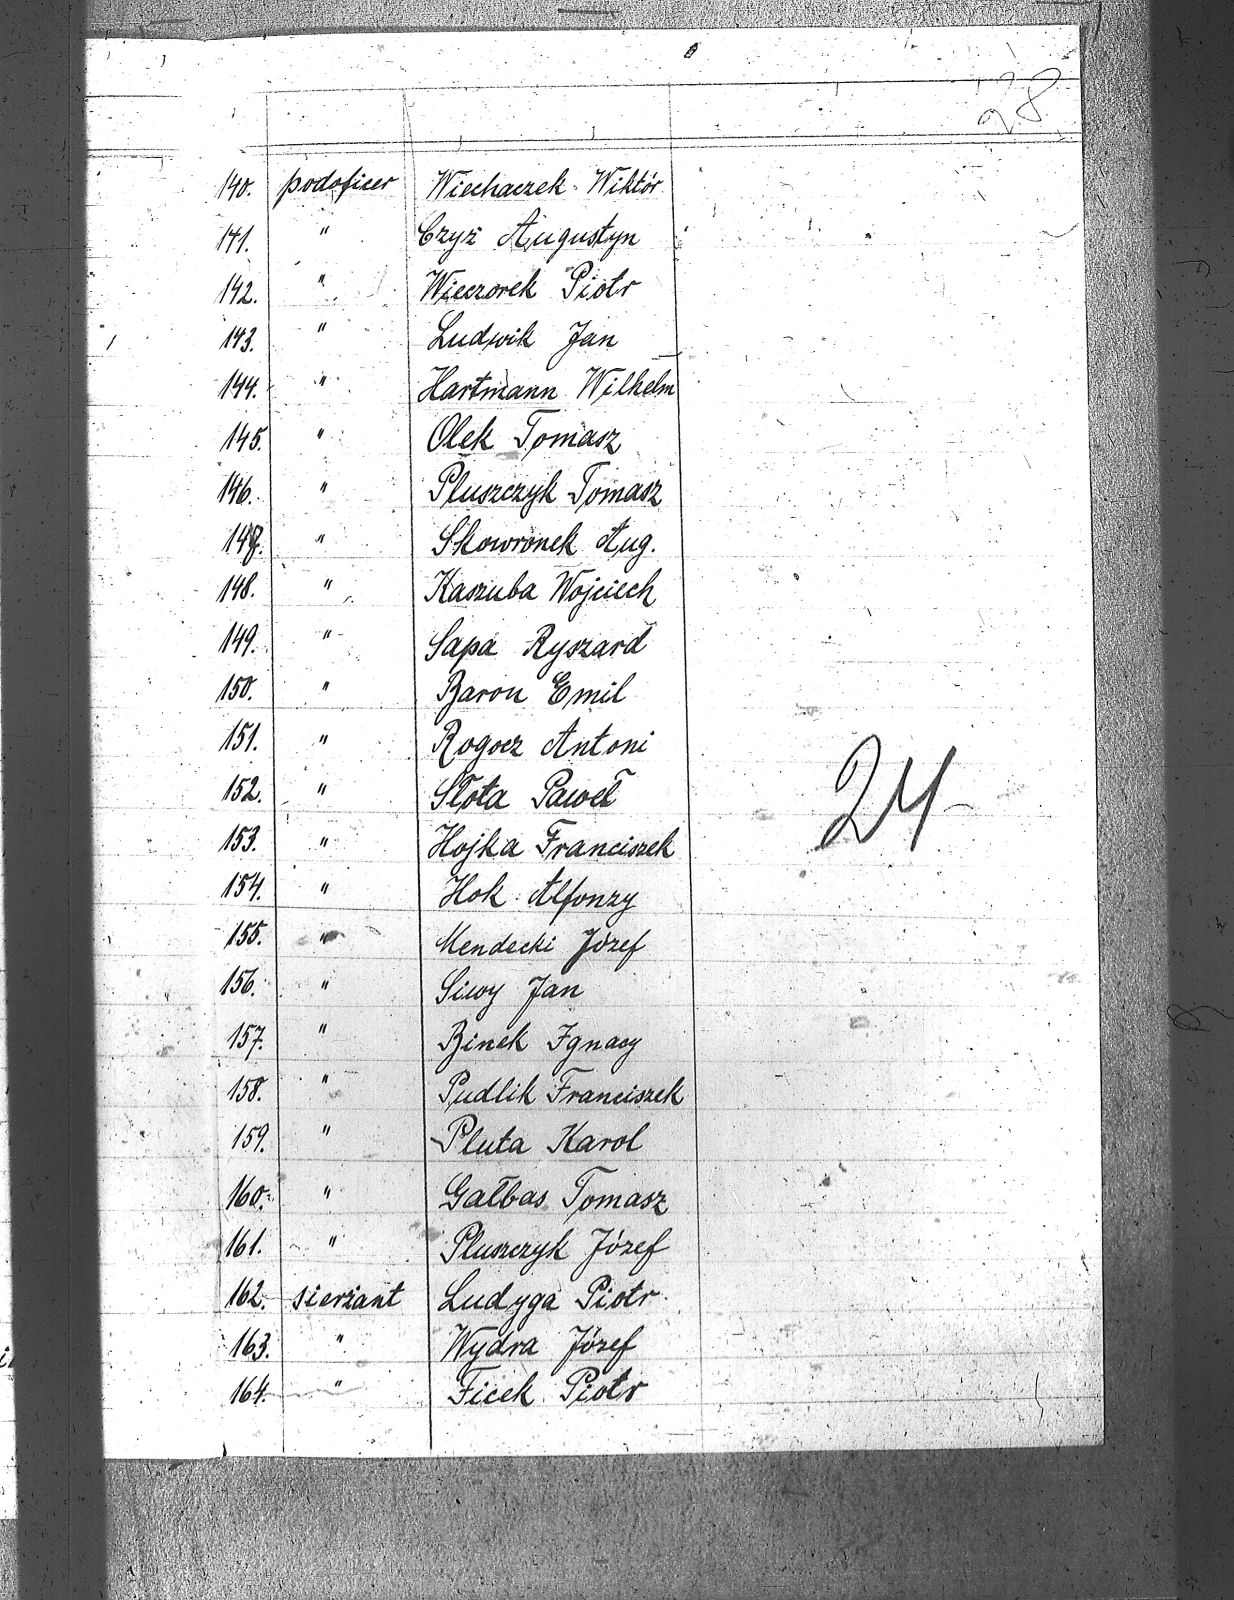 28
140. podoficer Wiechaczek Wiktór
141. " Czyż Augustyn
142. " Wieczorek Piotr
143. " Ludwik Jan
144. " Hartmann Wilhelm
145. " Olek Tomasz
146. " Pluszczyk Tomasz
147. " Skowronek Aug.
148. " Kaszuba Wojciech
149. " Sapa Ryszard
150. " Baron Emil
151. " Rogocz Antoni
152. " Słota Paweł
153. " Hojka Franciszek
154. " Hok Alfonzy
155. " Mendecki Józef
156. " Siwy Jan
157. " Binek Ignacy
158. " Pudlik Franciszek
159. " Pluta Karol
160. " Gałbas Tomasz
161. " Pluszczyk Józef
162. sierżant Ludyga Piotr
163. " Wydra Józef
164. " Ficek Piotr
24